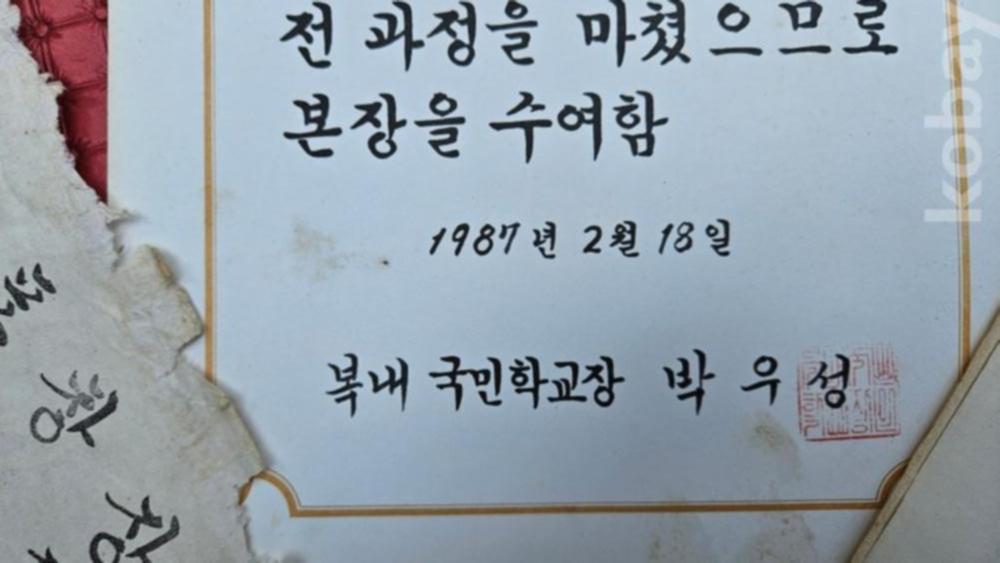 전 과정을 마쳤으므로
본장을 수여함
1987년 2월 18일
복내 국민학교장 박우성
kobay